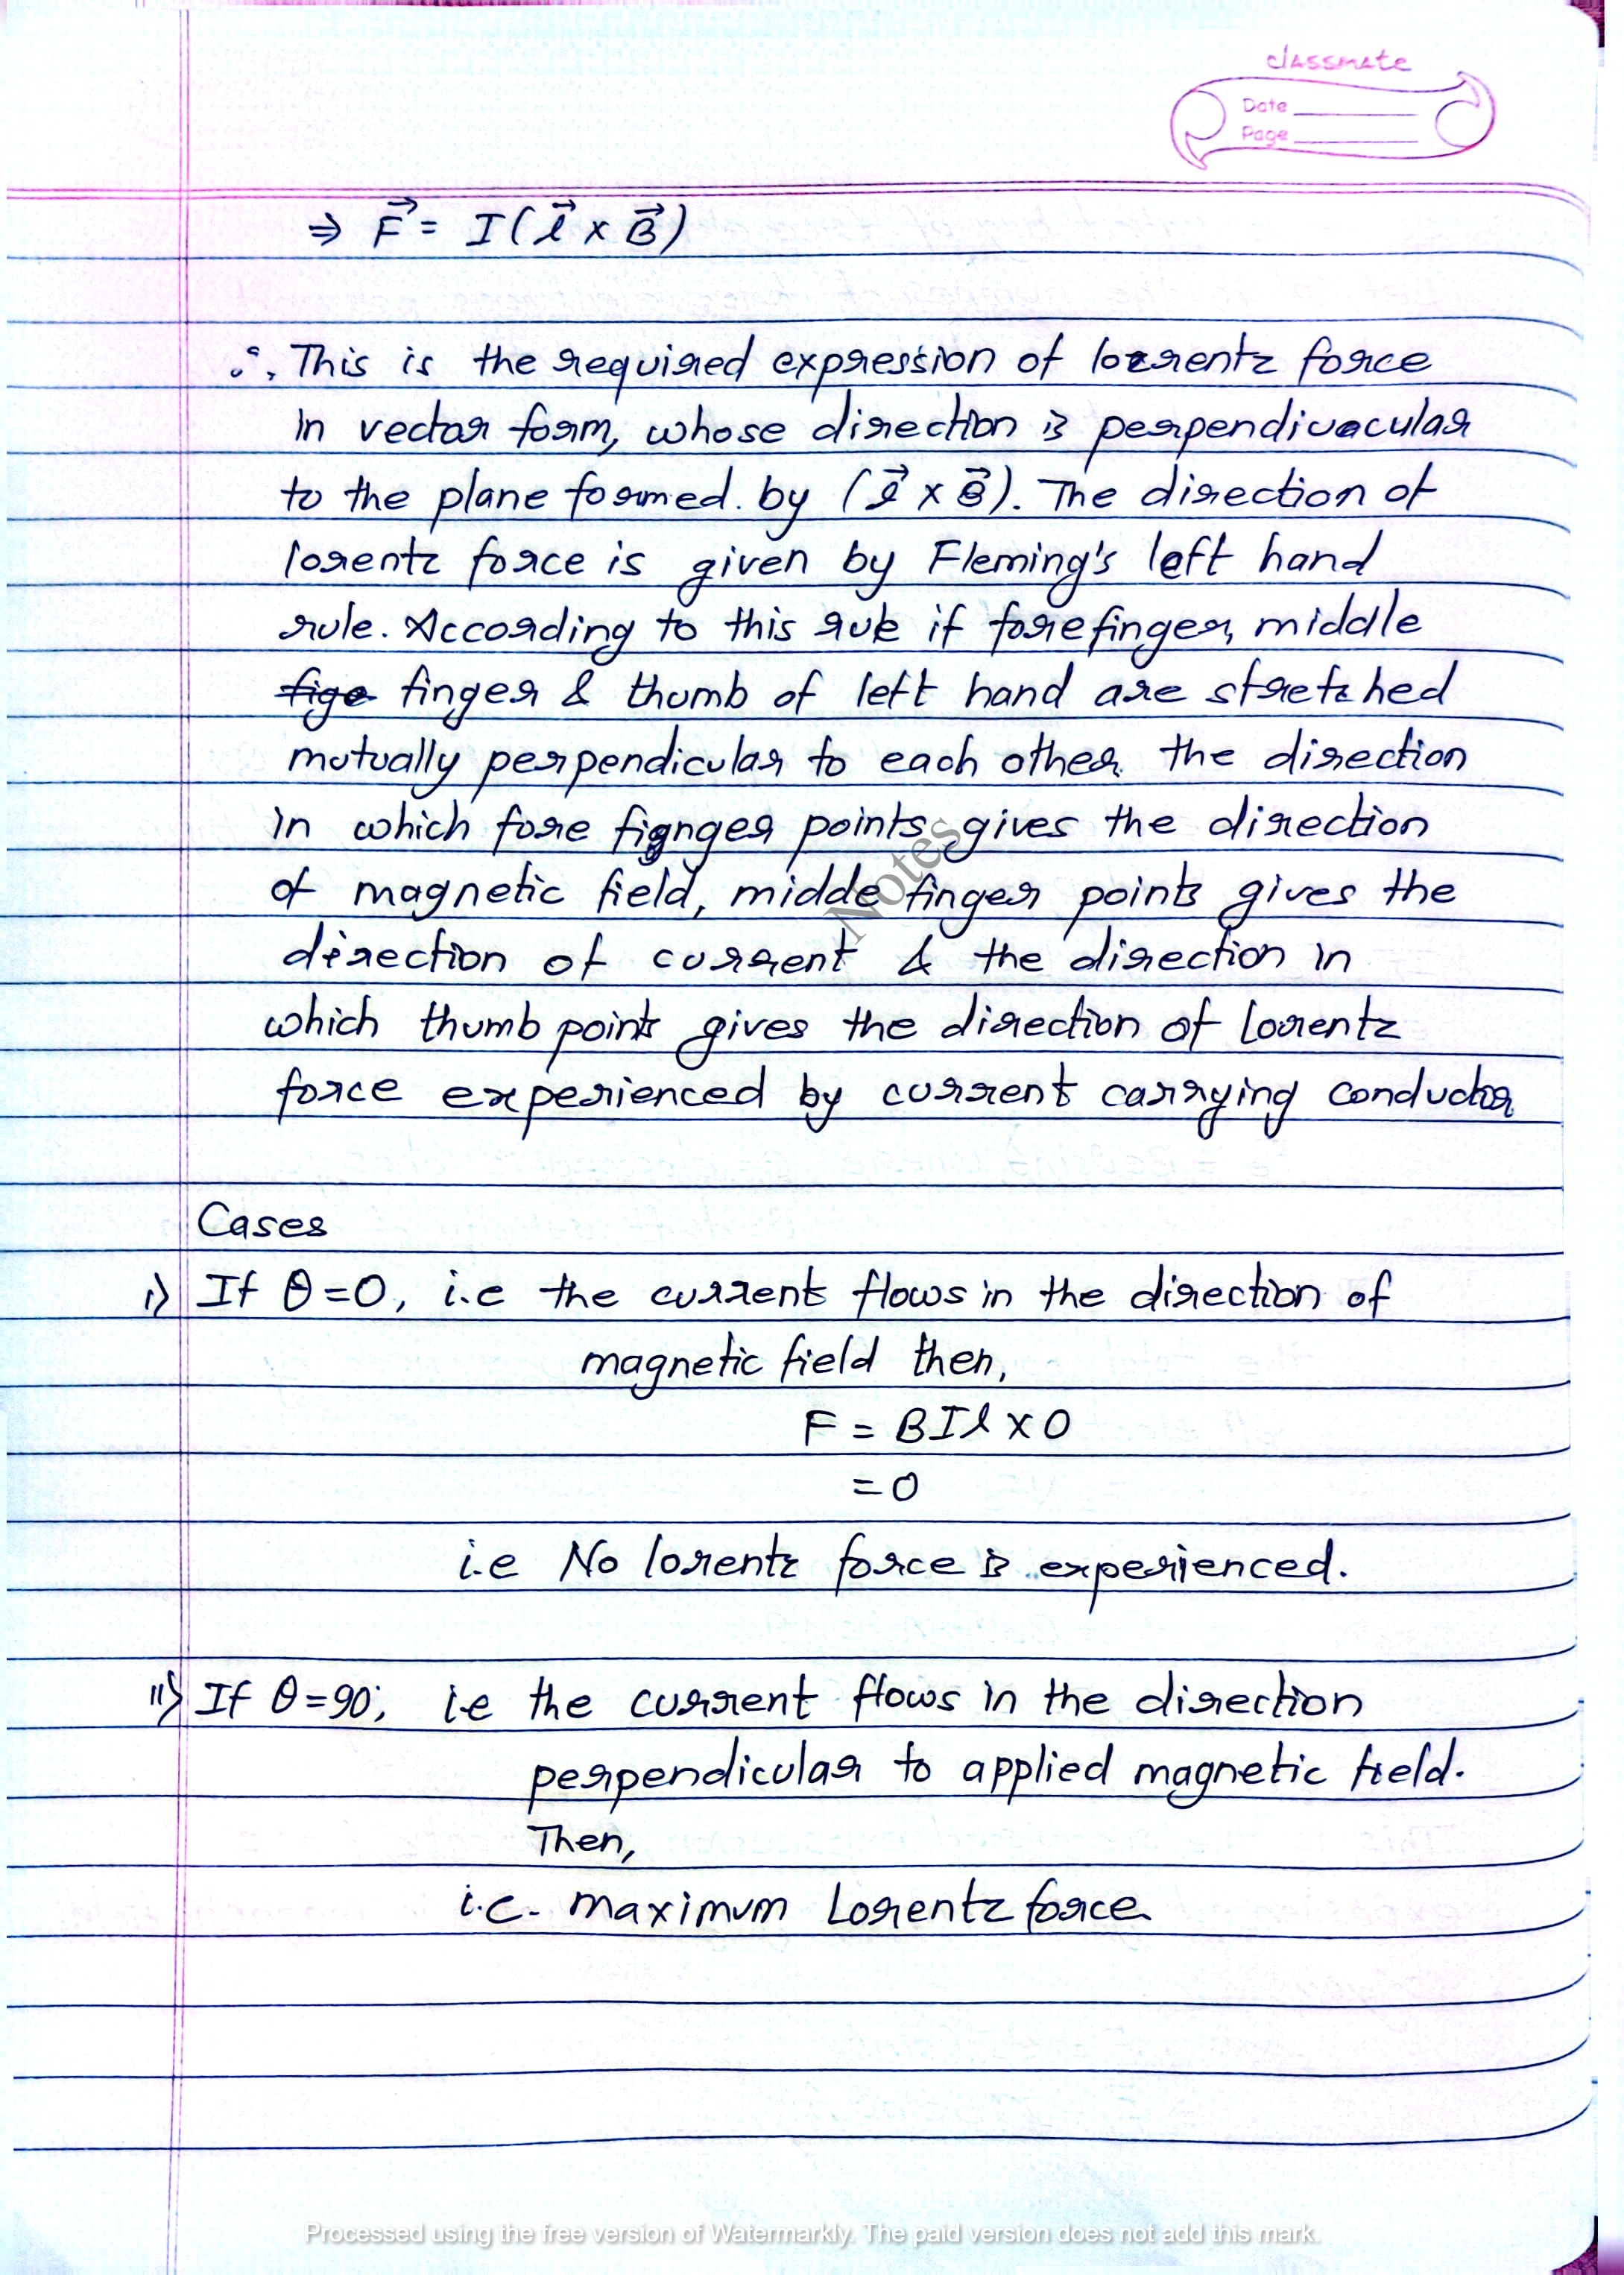 classmate
Date
Page
⇒ F⃗ = I(l⃗ × B⃗)
∴ This is the required expression of lorentz force
in vector form, whose direction is perpendiuacular
to the plane formed. by (l⃗ × B⃗). The direction of
lorentz force is given by Fleming's left hand
rule. According to this rule if forefinger, middle
fige finger & thumb of left hand are stretched
mutually perpendicular to each other. the direction
in which fore fignger points gives the direction
of magnetic field, midde finger points gives the
direction of current & the direction in
which thumb points gives the direction of lorentz
force experienced by current carrying conductor
Notes
Cases
i) If θ=0, i.e the current flows in the direction of
magnetic field then,
F = BIl × 0
= 0
i.e No lorentz force is experienced.
ii) If θ=90°, i.e the current flows in the direction
perpendicular to applied magnetic field.
Then,
i.e. maximum Lorentz force.
Processed using the free version of Watermarkly. The paid version does not add this mark.